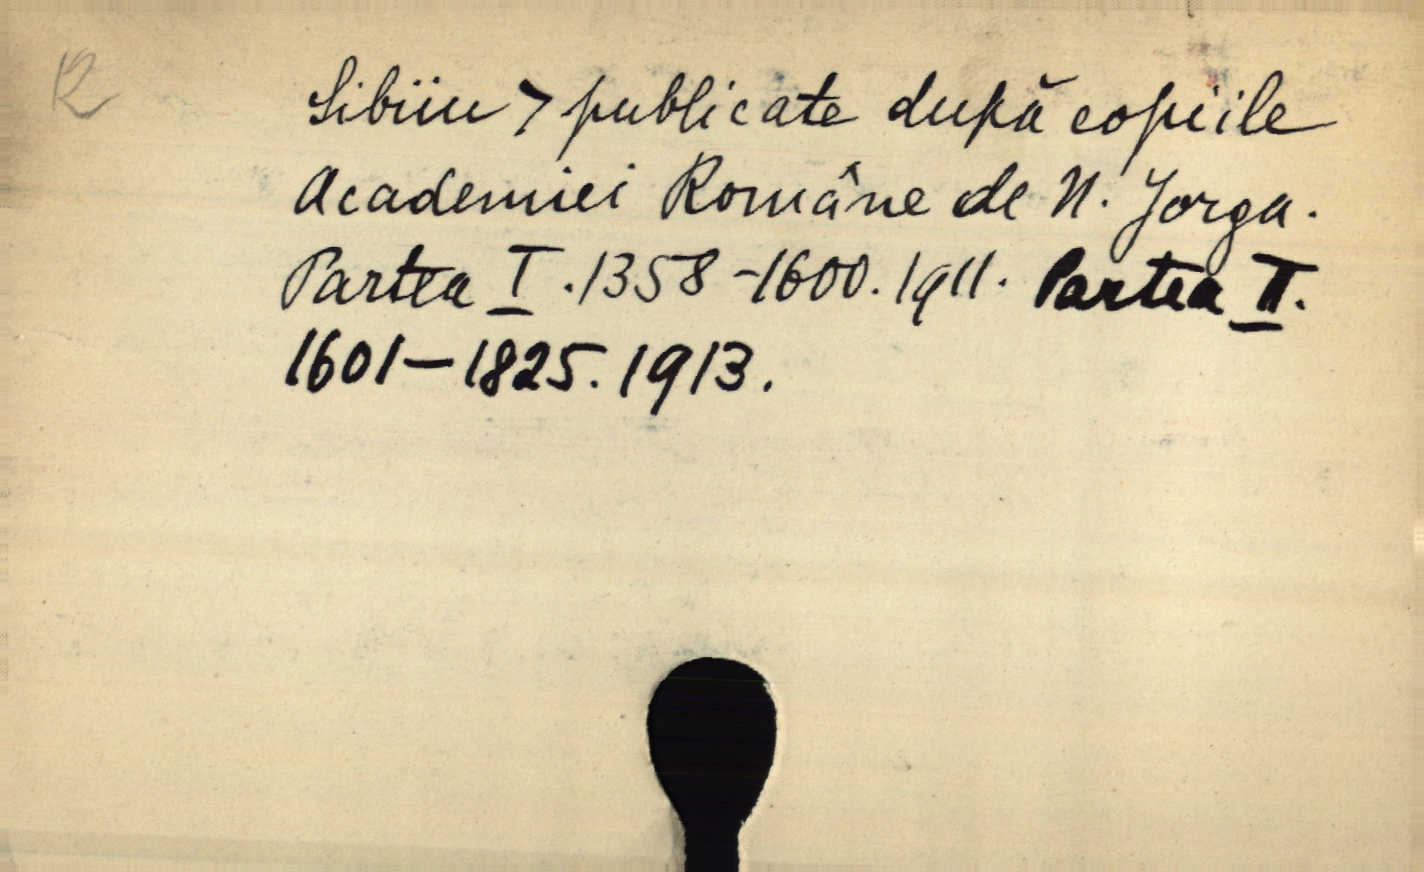 R
Sibiiu > publicate după copiile
Academiei Române de N. Jorga.
Partea I. 1358-1600. 1911. Partea II.
1601-1825. 1913.